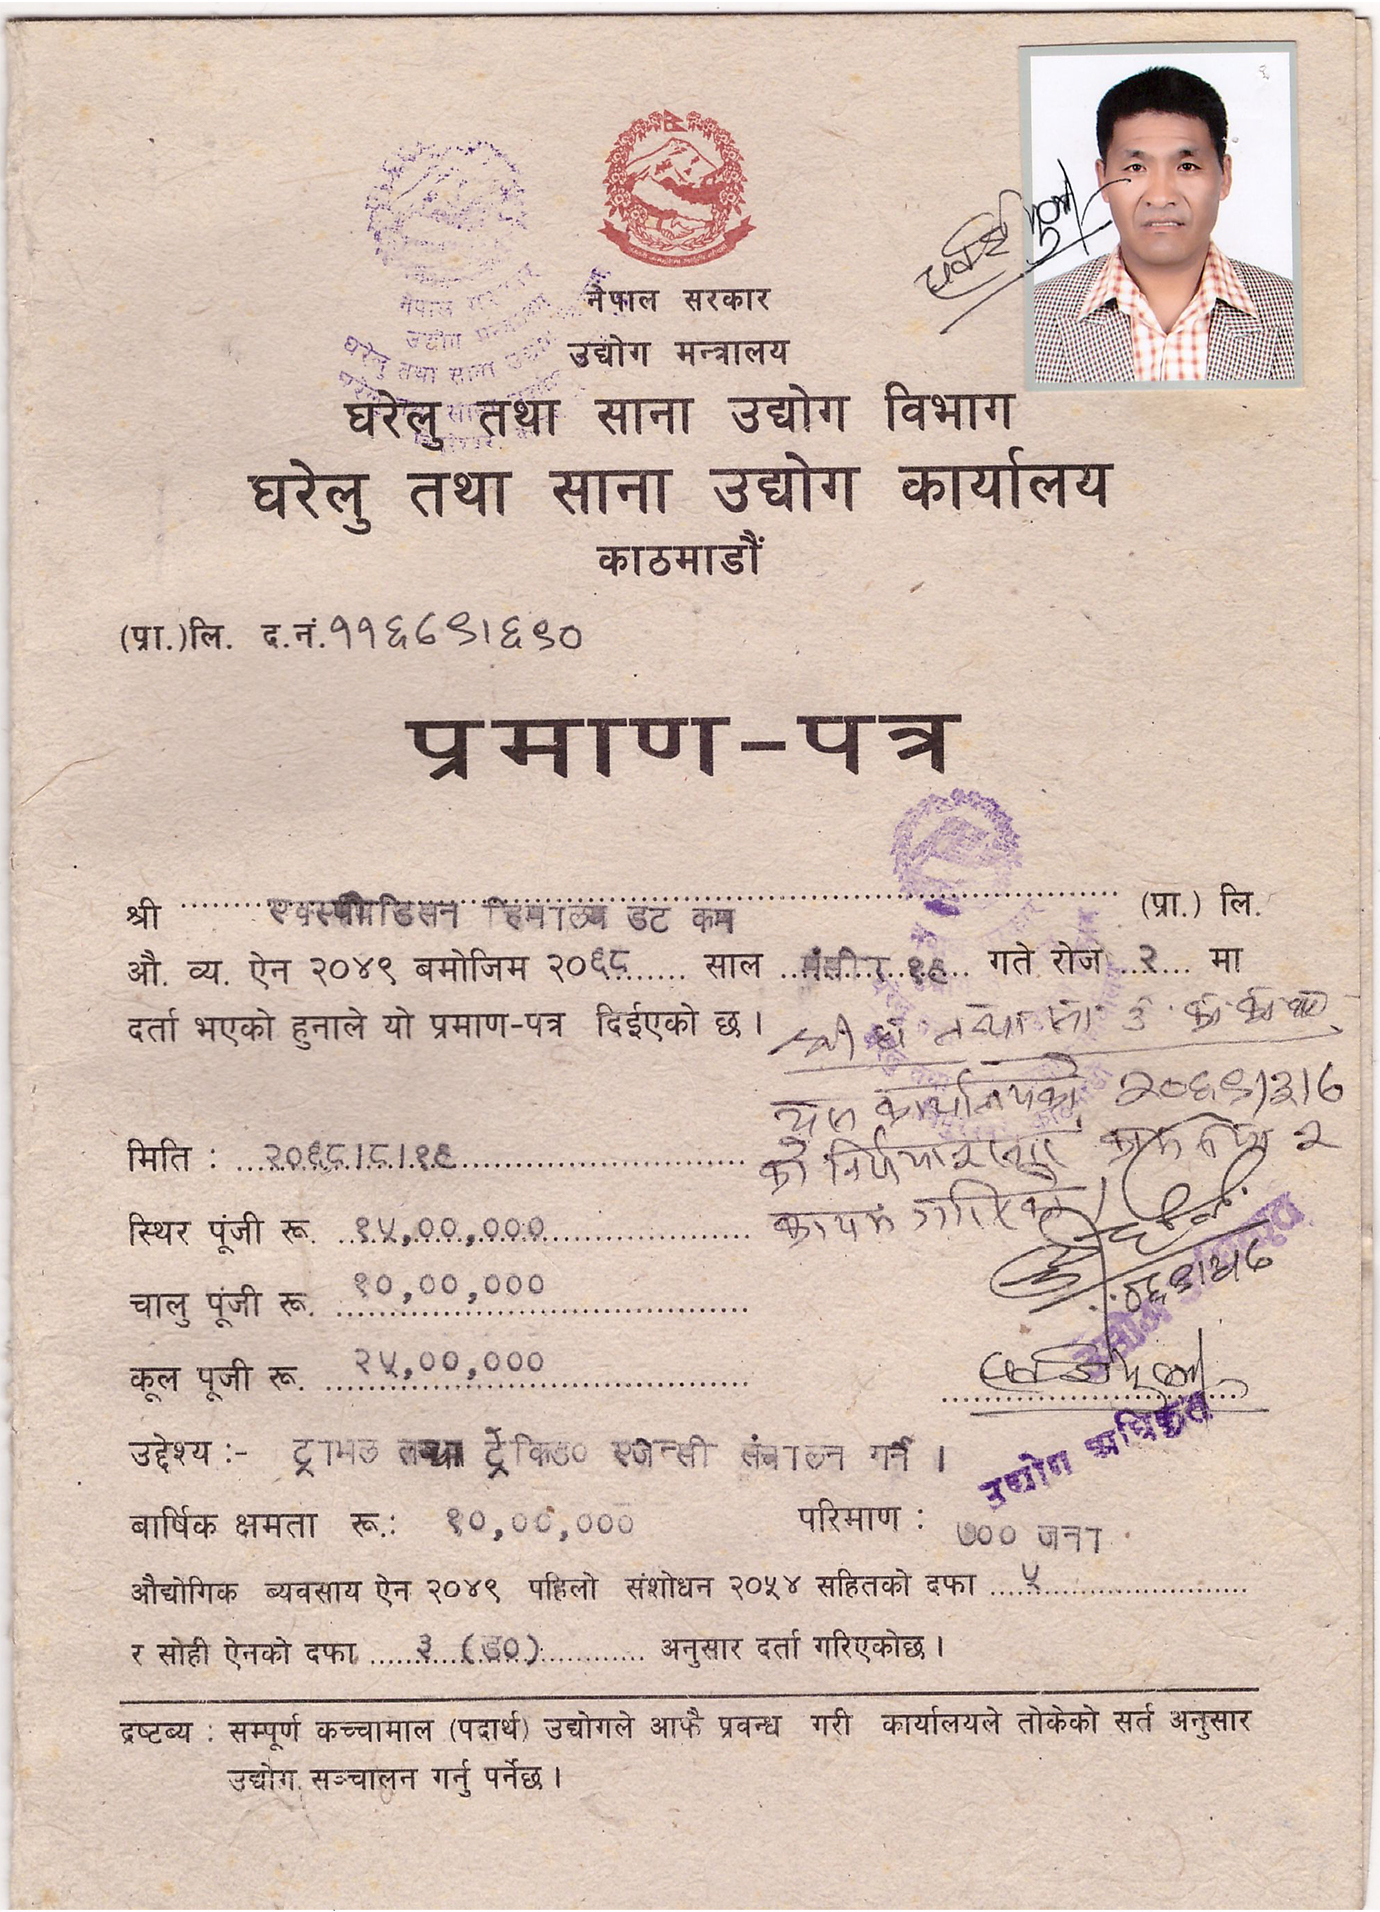 नेपाल सरकार
उद्योग मन्त्रालय
घरेलु तथा साना उद्योग विभाग
घरेलु तथा साना उद्योग कार्यालय
काठमाडौं
(प्रा.)लि. द.नं.११६८९।६९०
प्रमाण-पत्र
श्री एक्स्पीडिसन हिमालय डट कम (प्रा.) लि.
औ. व्य. ऐन २०४९ बमोजिम २०६८ साल मंसीर १९ गते रोज २ मा
दर्ता भएको हुनाले यो प्रमाण-पत्र दिईएको छ।
मिति : २०६८।८।१९
स्थिर पूंजी रू. १५,००,०००
चालु पूंजी रू. १०,००,०००
कूल पूजी रू. २५,००,०००
उद्देश्य :- ट्राभल तथा ट्रेकिङ० एजेन्सी संचालन गर्ने ।
उद्योग अधिकृत
बार्षिक क्षमता रू.: १०,००,००० परिमाण : ७०० जना
औद्योगिक ब्यवसाय ऐन २०४९ पहिलो संशोधन २०५४ सहितको दफा ५
र सोही ऐनको दफा ३ (ङ०) अनुसार दर्ता गरिएकोछ।
द्रष्टब्य : सम्पूर्ण कच्चामाल (पदार्थ) उद्योगले आफै प्रवन्ध गरी कार्यालयले तोकेको सर्त अनुसार
उद्योग सञ्चालन गर्नु पर्नेछ।